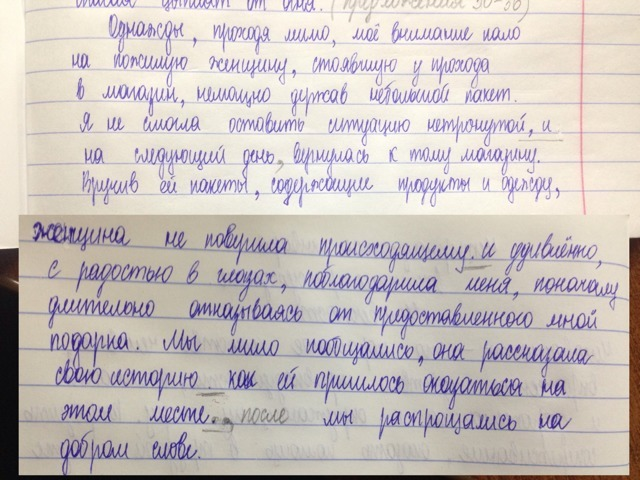 опасая цыплят от огня. (предложения 30-36)
Однажды, проходя мимо, моё внимание пало
на пожилую женщину, стоявшую у прохода
в магазин, немощно державшую небольшой пакет.
Я не смогла оставить ситуацию нетронутой, и
на следующий день, вернулась к тому магазину.
Вручив ей пакеты, содержащие продукты и одежду,
женщина не поверила происходящему. и удивлённо,
с радостью в глазах, поблагодарила меня, поначалу
длительно отказываясь от предоставленного мной
подарка. Мы мило пообщались, она рассказала
свою историю как ей пришлось оказаться на
этом месте. после мы распрощались на
добром слове.